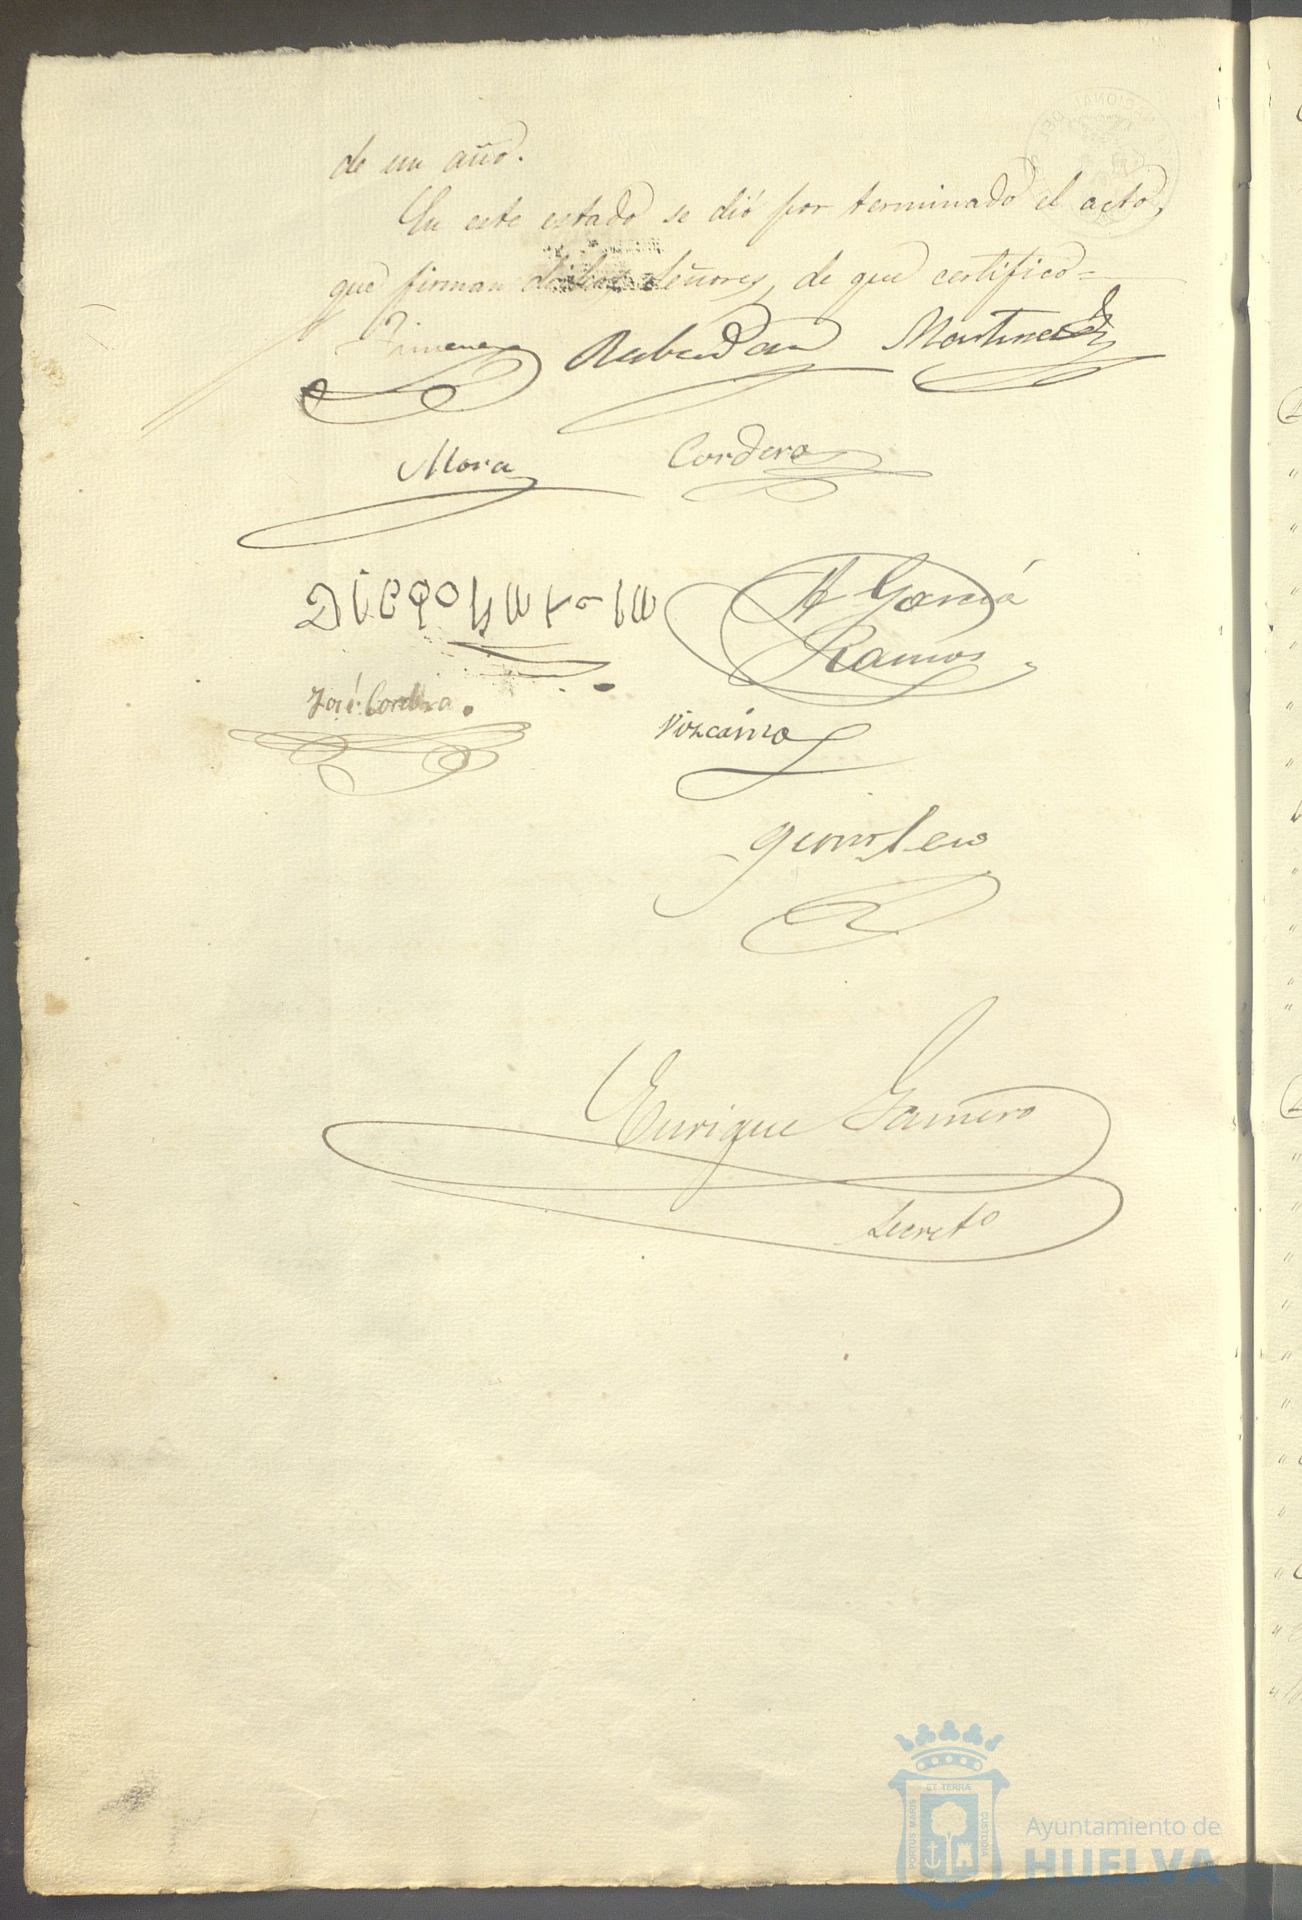 de un año.
En este estado se dió por terminado el acto,
que firman dichos Señores, de que certifico=
Jimenez Rabadan Martinez
Mora Cordero
A Garcia
Ramos
José Cordero.
Vizcaino
Enrique Gamero
Secret.o
ET TERRA
PORTUS MARIS
CUSTODIA
Ayuntamiento de
HUELVA